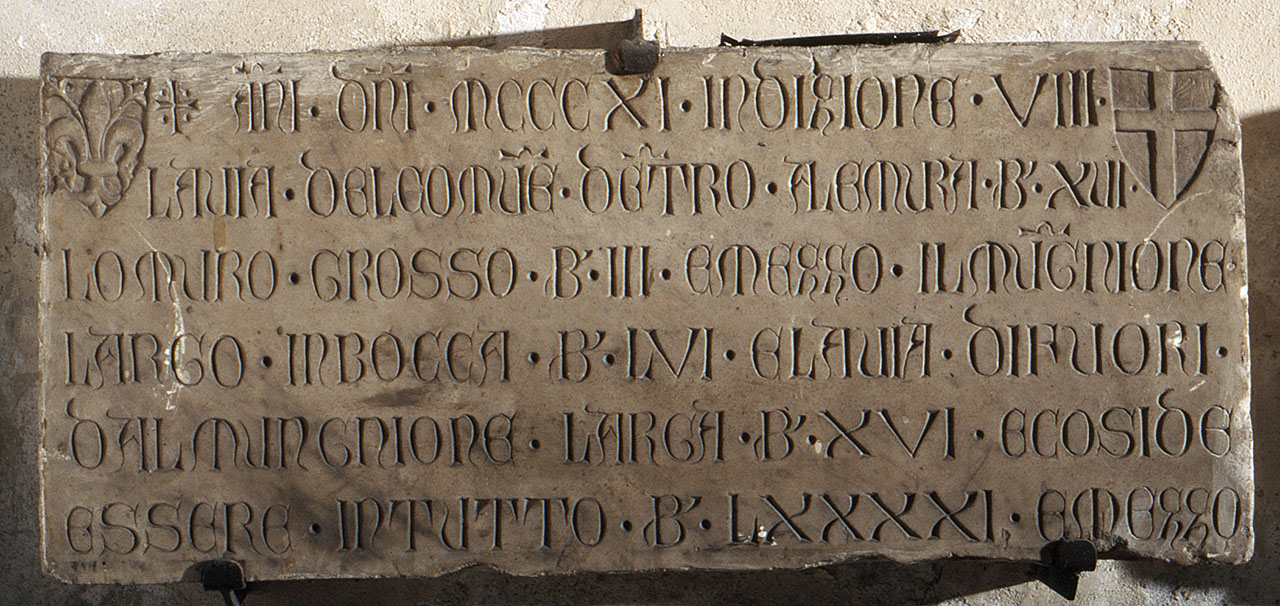 ✠ AÑI · DÑI · MCCCXI · INDIZIONE · VIII ·
LAVIA · DELCOMUÑE · DẼTRO · ALEMURA · B' · XVI ·
LOMURO · GROSSO · B' · III · EMEZZO · ILMŨGNIONE ·
LARGO · INBOCCA · B' · LVI · ELAVIA · DIFUORI ·
DALMUNGNIONE · LARGA · B' · XVI · ECOSIDE
ESSERE · INTUTTO · B' · LXXXXI · EMEZZO